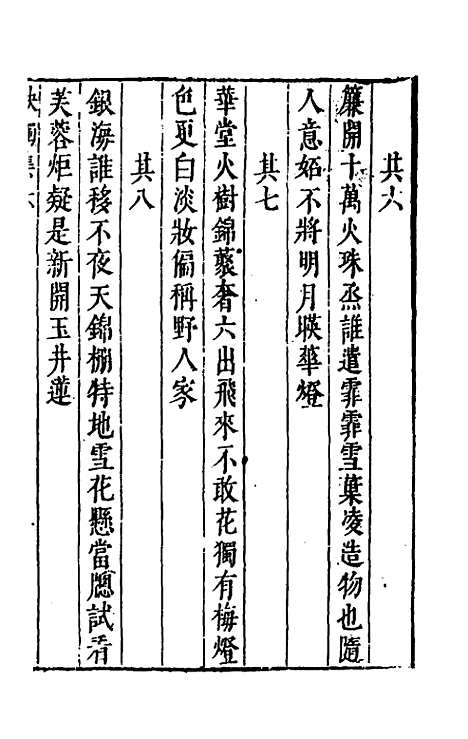 其六
簾開十萬火珠烝誰遣霏霏雪葉凌造物也隨
人意妬不將明月暎華燈
其七
華堂火樹錦褧奢六出飛來不敢花獨有梅燈
色更白淡妝偏稱野人家
其八
銀海誰移不夜天錦棚特地雪花懸當牕試看
芙蓉炬疑是新開玉井蓮